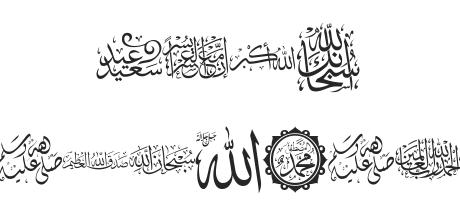 سبحانك الله الله أكبر إن مع العسر يسرا عيد سعيد
الحمد لله رب العالمين صلى الله عليه وسلم محمد الله جل جلاله سبحان الله صدق الله العظيم صلى الله عليه وسلم